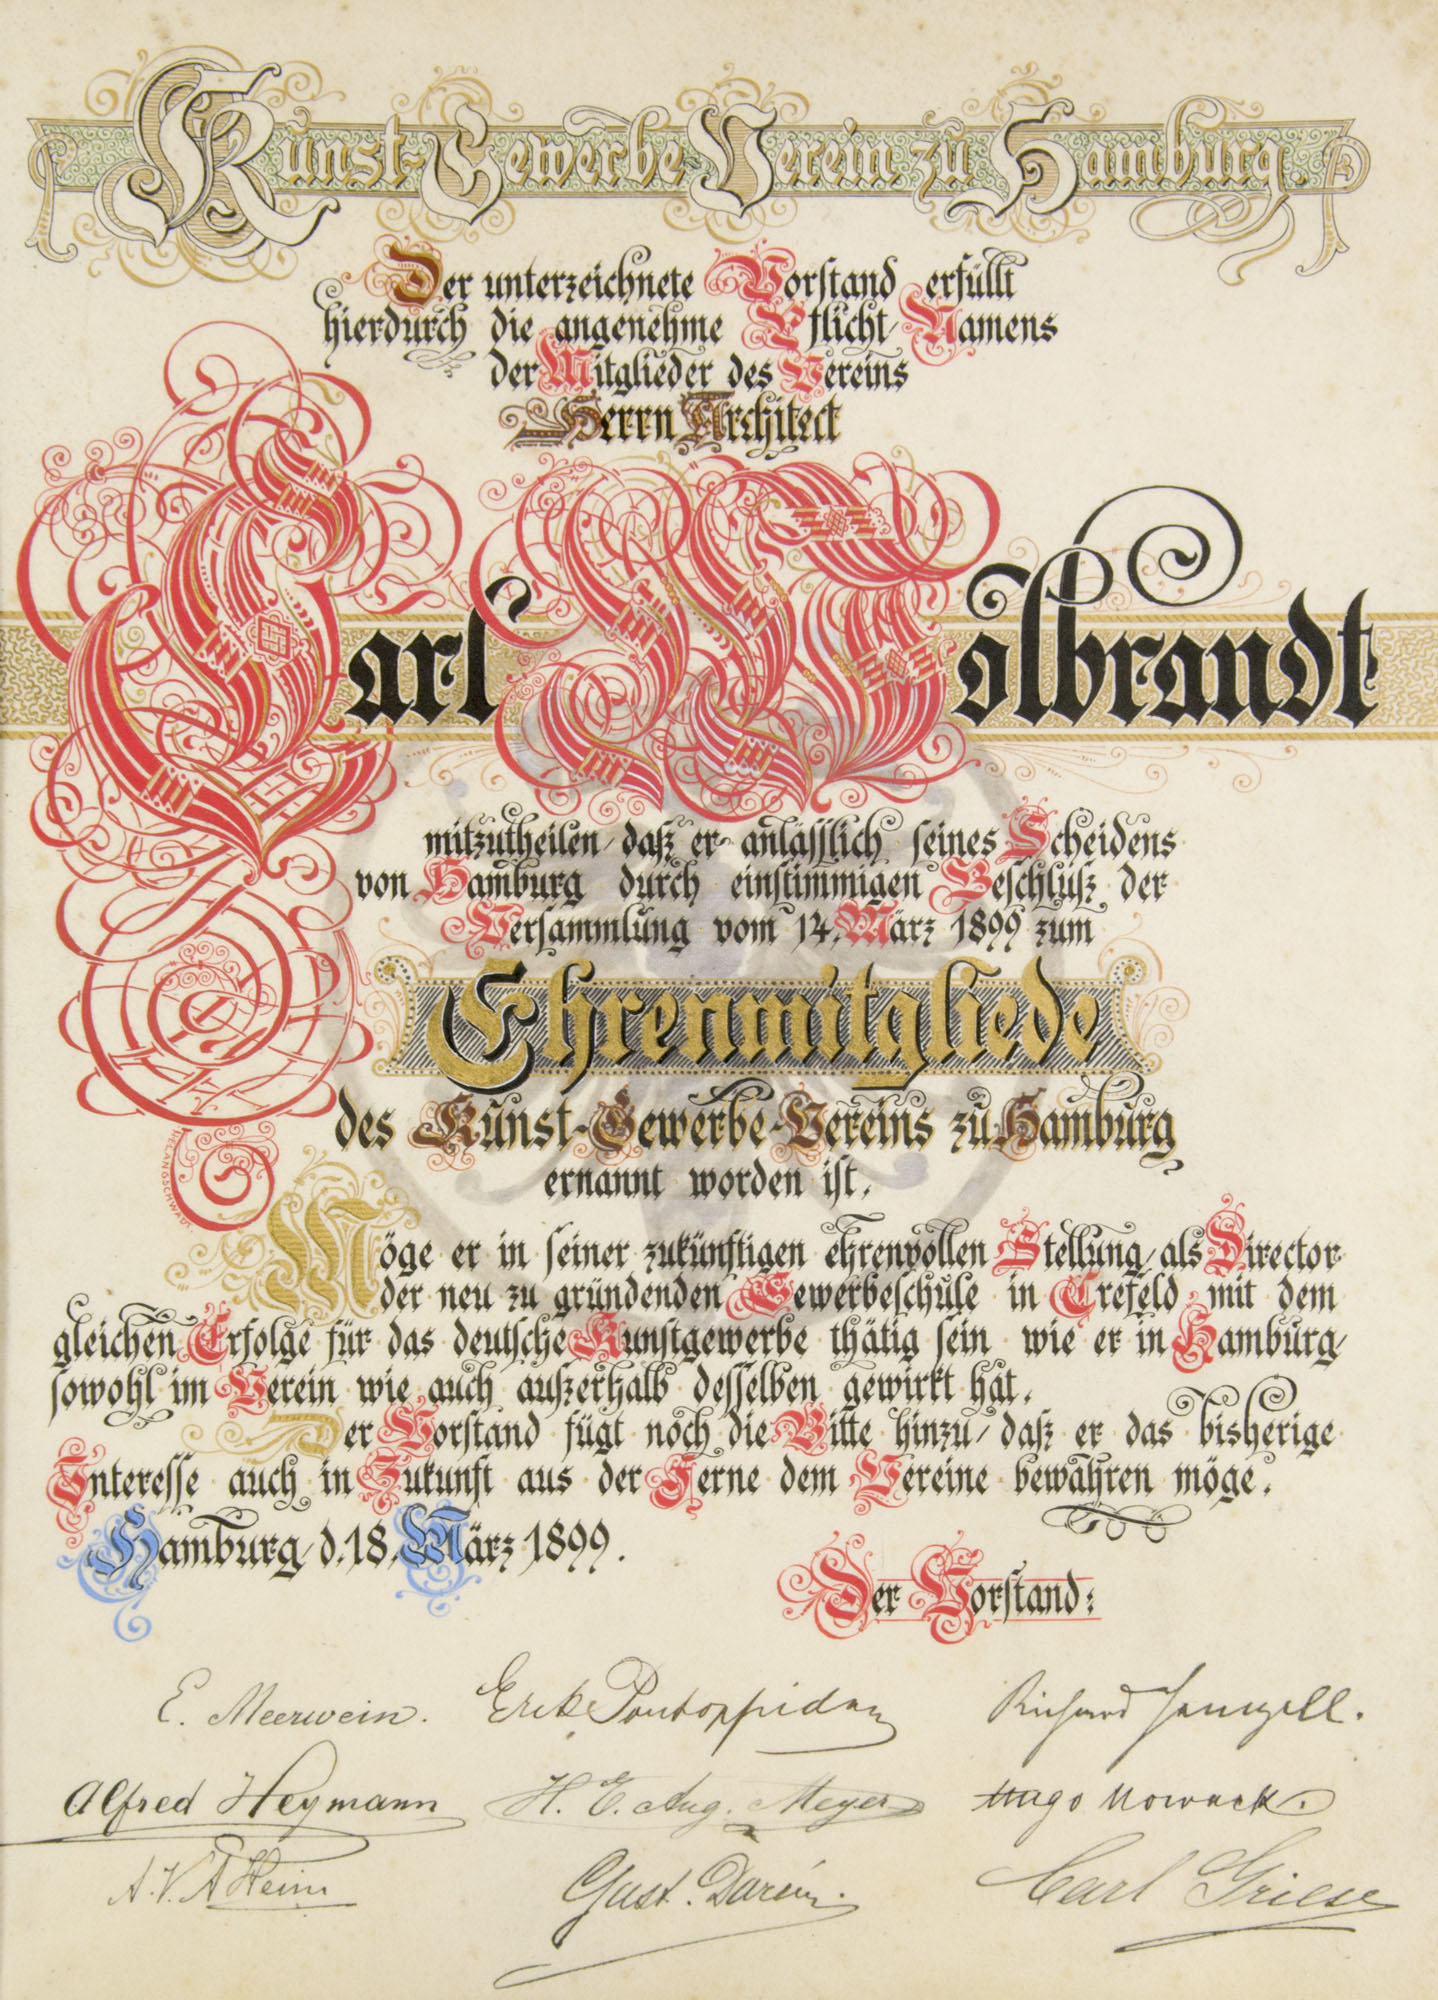 Kunst-Gewerbe-Verein zu Hamburg.
Der unterzeichnete Vorstand erfüllt
hierdurch die angenehme Pflicht, Namens
der Mitglieder des Vereins
Herrn Architect
Carl Wolbrandt
mitzutheilen, daß er anläſſlich ſeines Scheidens
von Hamburg durch einſtimmigen Beſchluß der
Verſammlung vom 14. März 1899 zum
Ehrenmitgliede
des Kunst-Gewerbe-Vereins zu Hamburg
ernannt worden iſt.
Möge er in ſeiner zukünftigen ehrenvollen Stellung, als Director
der neu zu gründenden Gewerbeſchule in Crefeld, mit dem
gleichen Erfolge für das deutſche Kunſtgewerbe thätig ſein wie er in Hamburg,
ſowohl im Verein wie auch außerhalb deſſelben gewirkt hat.
Der Vorſtand fügt noch die Bitte hinzu, daß er das bisherige
Intereſſe auch in Zukunft aus der Ferne dem Vereine bewahren möge.
Hamburg, d. 18. März 1899.
Der Vorſtand:
E. Meerwein. Erik Pontoppidan Richard
Alfred Heymann H. E. Aug. Meyer Hugo Nowack.
Heim Gust. Carl Griese